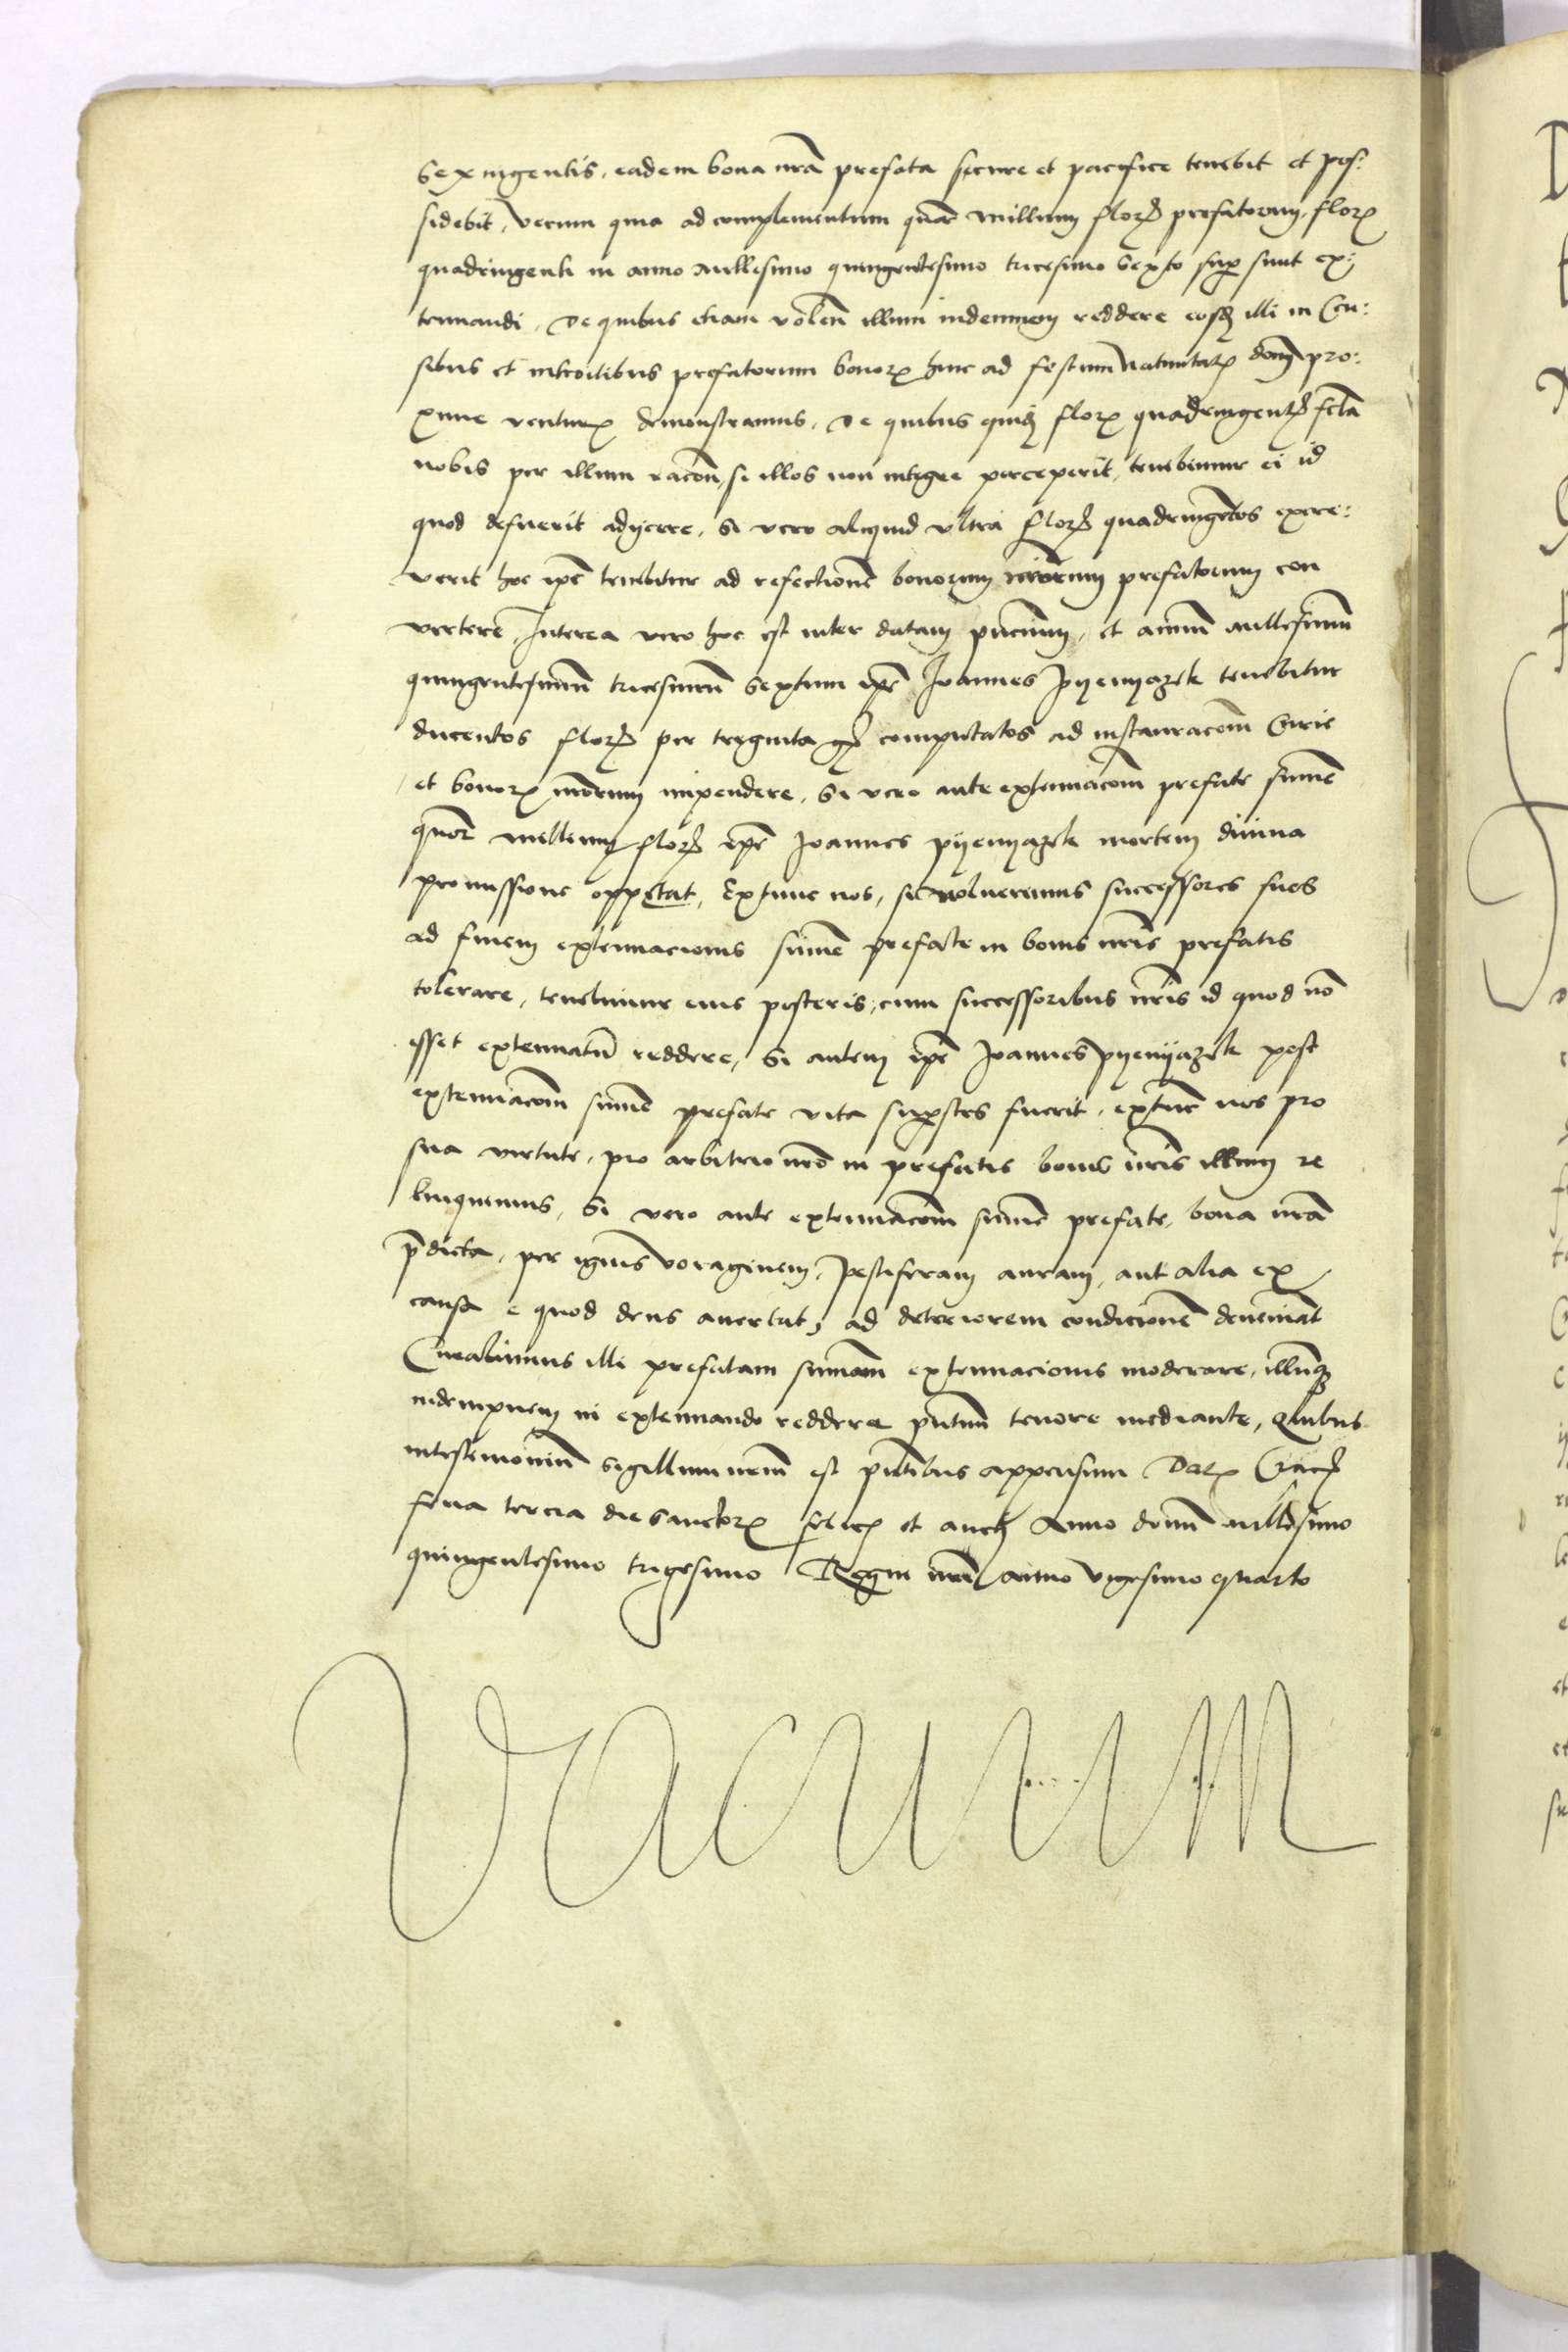 sexingentis, eadem bona nrã prefata secure et pacifice tenebit et pos:
sidebit, verum quia ad complementum quãr millium florꝭ prefatorum, florꝝ
quadringenti in anno millesimo quingentesimo tricesimo sexto suꝑ sunt ex:
tenuandi, De quibus etiam volen̄ illum indemnem reddere eosdꝫ illi in Cen:
sibus et introitibus prefatorum bonorꝝ hinc ad festum nativitatꝝ domi pro:
xime venturꝝ demonstramus, De quibus quidꝫ florꝝ quadringentꝭ fctã
nobis per illum racõn, si illos non integre perceperit, tenebimur ei id
quod defuerit adijcere, Si vero aliquid vltra florꝭ quadringẽtos excre:
verit hoc ipẽ tenebitur ad refectionẽ bonorum nrõrum prefatorum con
vertere, Interea vero hoc est inter datam pñcium, et annum millesimum
quingentesimum tricesimum sextum ipẽ Joannes Pyenyazek tenebitur
ducentos florꝭ per triginta gꝭ computatos ad instauracõm Curie
et bonorꝝ nrõrum impendere, Si vero ante extenuacõm prefate sum̃e
quãor millium florꝭ ipẽ Joannes pyenyazek mortem divina
promissione oppetat, Extunc nos, si noluerimus successores suos
ad finem extenuacionis sum̃e prefate in bonis nrĩs prefatis
tolerare, tenebimur eius posteris, cum successoribus nrĩs id quod nõ
esset extenuatũ reddere, Si autem ipẽ Joannes Pyenyazek post
extenuacõm sum̃e prefate vita suꝑstes fuerit, extunc nos pro
sua virtute, pro arbitrio nrõ in prefatis bonis nrĩs illum re
linquemus, Si vero ante extenuacõm sum̃e prefate, bona nrã
p̃dicta, per ignis voraginem, pestiferam auram, aut alia ex
causa quod deus avertat, ad deteriorem condicionẽ deveniãt
Curabimus illi prefatam summam extenuacionis moderare, illũqꝫ
indempnem in extenuando reddere pñtium tenore mediante, Quibus
in testimoniũ sigillum nrum est pñtibus appensum Datꝝ Cracꝭ
feria tercia die sanctorꝝ felicꝭ et aucti Anno domi millesimo
quingentesimo trigesimo Regni nri anno vigesimo quarto
Vacuum